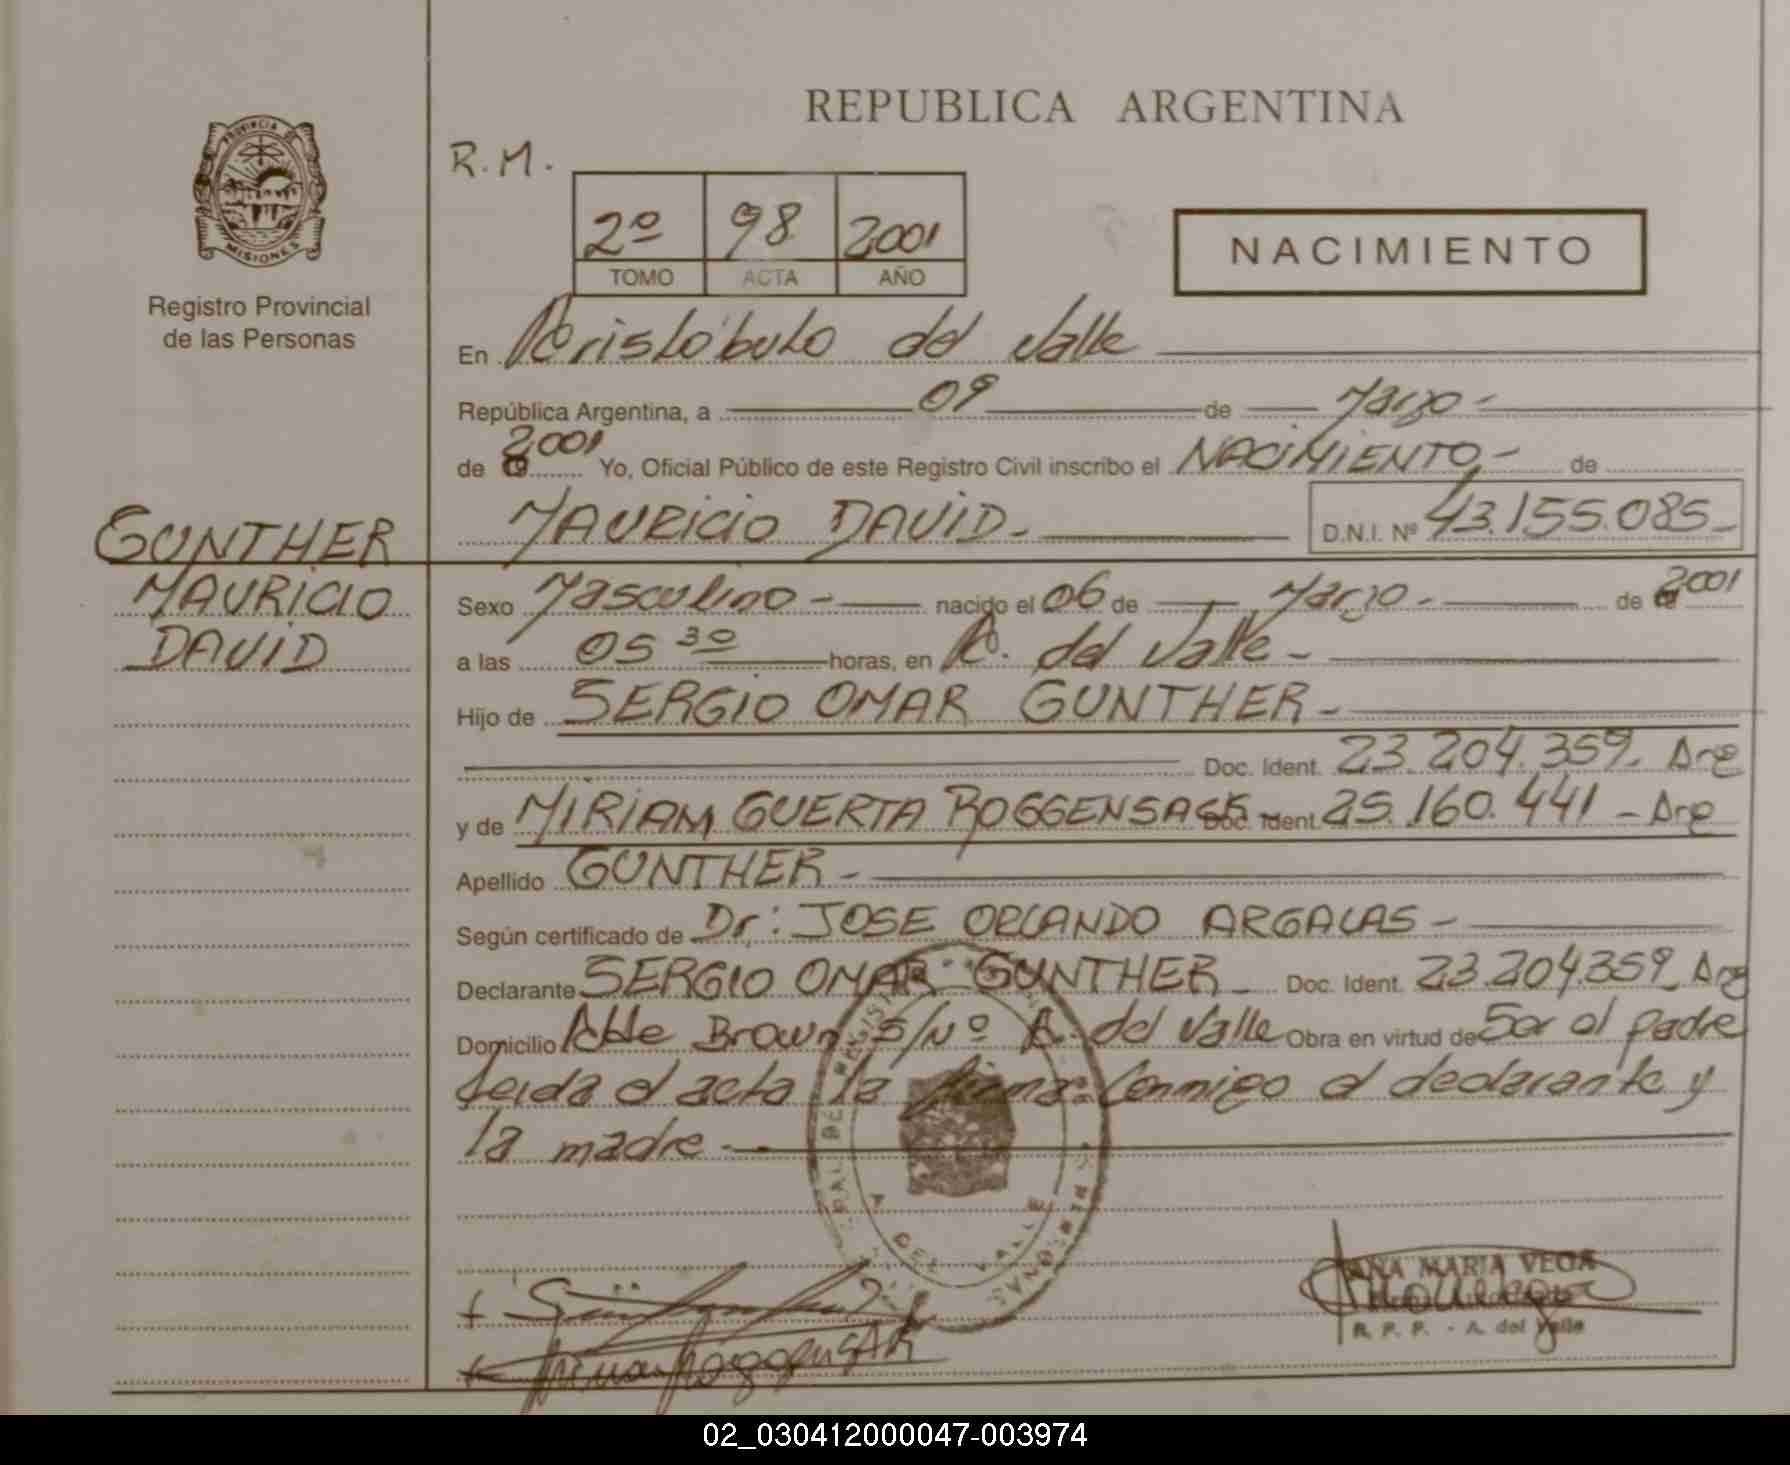 REPUBLICA ARGENTINA
PROVINCIA DE
MISIONES
Registro Provincial
de las Personas
R.M.
2º 98 2001
TOMO ACTA AÑO
NACIMIENTO
En Aristóbulo del Valle
República Argentina, a 09 de Marzo -
de 2001 Yo, Oficial Público de este Registro Civil inscribo el NACIMIENTO - de
GUNTHER
MAURICIO
DAVID
MAURICIO DAVID - D.N.I. Nº 43.155.085 -
Sexo Masculino - nacido el 06 de Marzo - de 2001
a las 05 30 horas, en A. del Valle -
Hijo de SERGIO OMAR GUNTHER -
Doc. Ident. 23.204.359 - Arg
y de MIRIAM GUERTA ROGGENSACK - Doc. Ident. 25.160.441 - Arg
Apellido GUNTHER -
Según certificado de Dr: JOSE ORLANDO ARGALAS -
Declarante SERGIO OMAR GUNTHER - Doc. Ident. 23.204.359 Arg
Domicilio Alte Brown S/Nº A. del Valle Obra en virtud de Ser el padre
Leida el acta la firma Conmigo el declarante y
la madre -
A. DEL VALLE
ANA MARIA VEGA
R. P. P. - A. del Valle
02_030412000047-003974